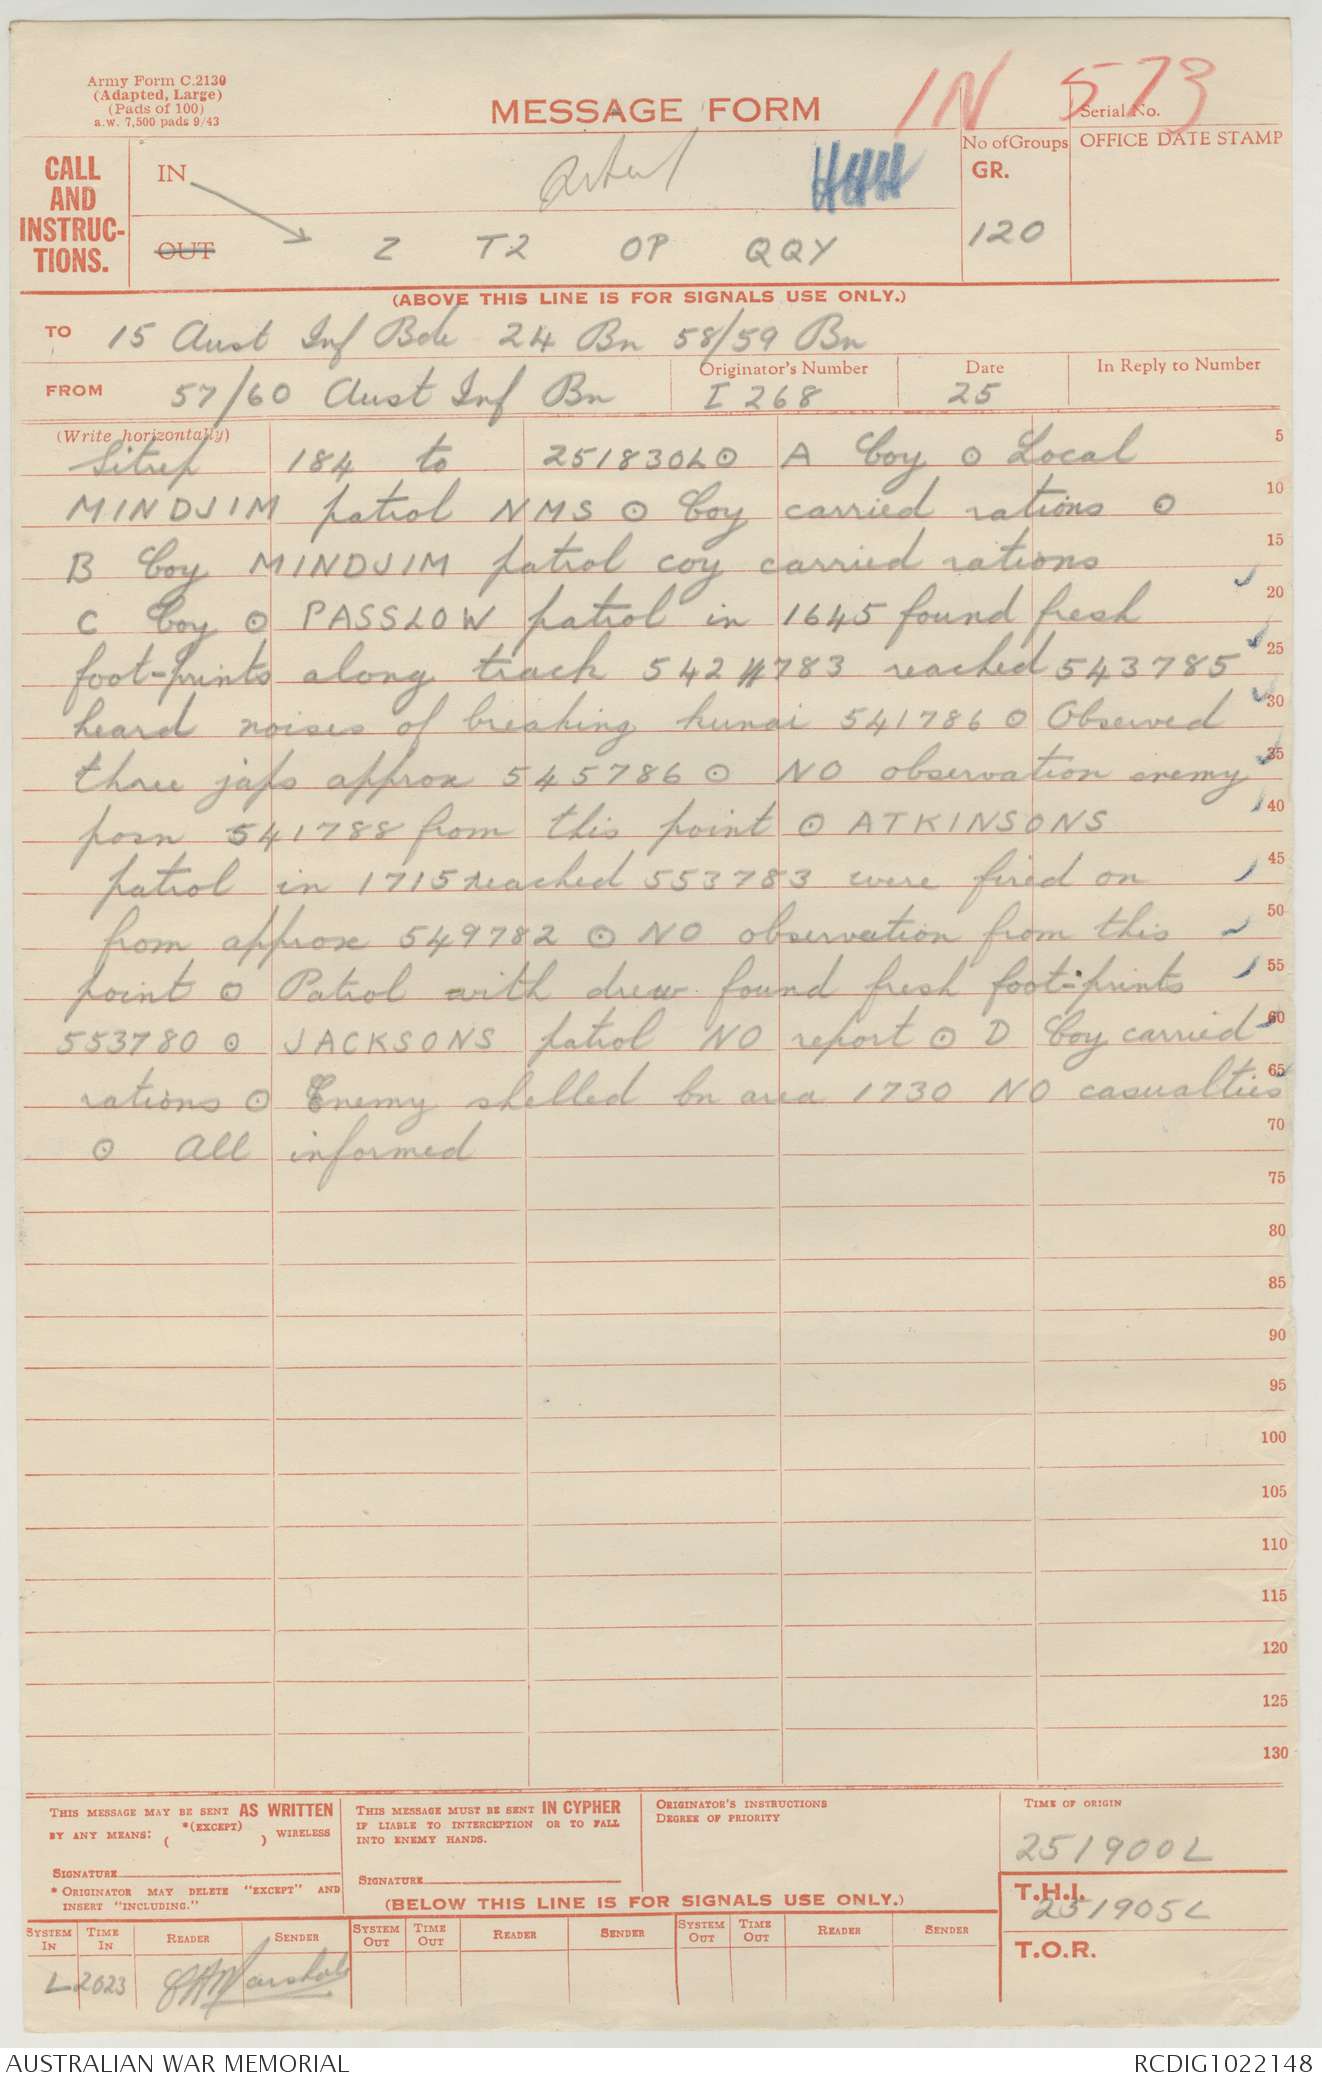 Army Form C.2130
(Adapted, Large)
(Pads of 100)
a.w. 7,500 pads 9/43
MESSAGE FORM
IN 573
Serial No.
CALL
AND
INSTRUC-
TIONS.
IN
OUT
Z T2 OP QQY
No of Groups
GR.
120
OFFICE DATE STAMP
(ABOVE THIS LINE IS FOR SIGNALS USE ONLY.)
TO 15 Aust Inf Bde 24 Bn 58/59 Bn
FROM 57/60 Aust Inf Bn
Originator's Number
I 268
Date
25
In Reply to Number
(Write horizontally)
Sitrep 184 to 251830L ⊙ A Coy ⊙ Local 5
MINDJIM patrol NMS ⊙ Coy carried rations ⊙ 10
B Coy MINDJIM patrol coy carried rations 15
C Coy ⊙ PASSLOW patrol in 1645 found fresh 20
foot-prints along track 542783 reached 543785 25
heard noises of breaking kunai 541786 ⊙ Observed 30
three japs approx 545786 ⊙ NO observation enemy 35
posn 541788 from this point ⊙ ATKINSONS 40
patrol in 1715 reached 553783 were fired on 45
from approx 549782 ⊙ NO observation from this 50
point ⊙ Patrol with drew found fresh foot-prints 55
553780 ⊙ JACKSONS patrol NO report ⊙ D Coy carried 60
rations ⊙ Enemy shelled bn area 1730 NO casualties 65
⊙ All informed 70
75
80
85
90
95
100
105
110
115
120
125
130
THIS MESSAGE MAY BE SENT AS WRITTEN
BY ANY MEANS: *(EXCEPT) ( ) WIRELESS
SIGNATURE
* ORIGINATOR MAY DELETE "EXCEPT" AND
INSERT "INCLUDING."
THIS MESSAGE MUST BE SENT IN CYPHER
IF LIABLE TO INTERCEPTION OR TO FALL
INTO ENEMY HANDS.
SIGNATURE
ORIGINATOR'S INSTRUCTIONS
DEGREE OF PRIORITY
TIME OF ORIGIN
251900L
(BELOW THIS LINE IS FOR SIGNALS USE ONLY.)
T.H.I.
251905L
T.O.R.
SYSTEM IN TIME IN READER SENDER SYSTEM OUT TIME OUT READER SENDER SYSTEM OUT TIME OUT READER SENDER
L 2023 Marshall
AUSTRALIAN WAR MEMORIAL RCDIG1022148